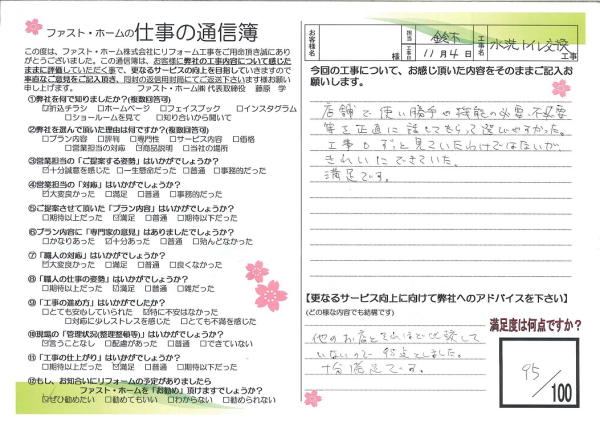 ファスト・ホームの仕事の通信簿
この度は、ファスト・ホーム株式会社にリフォーム工事をご用命頂き誠にあり
がとうございました。この通信簿は、お客様に弊社の工事内容について感じた
ままに評価していただく事で、更なるサービスの向上を目指していきますので
率直なご意見をご記入頂き、同封の返信用封筒にてご返送下さいます様お願い
申し上げます。 ファスト・ホーム㈱ 代表取締役 藤原 学
①弊社を何で知りましたか?(複数回答可)
☑折込チラシ □ホームページ □フェイスブック □インスタグラム
□ショールームを見て □知り合いから聞いて
②弊社を選んで頂いた理由は何ですか?(複数回答可)
□プラン内容 □評判 □専門性 □サービス内容 □価格
□営業担当の対応 □商品説明 □当社の場所
③営業担当の「ご提案する姿勢」はいかがでしょうか?
☑十分誠意を感じた □一生懸命だった □普通 □事務的だった
④営業担当の「対応」はいかがでしょうか?
☑大変良かった □満足 □普通 □事務的だった
⑤ご提案させて頂いた「プラン内容」はいかがでしょうか?
□期待以上だった ☑満足 □普通 □期待以下だった
⑥プラン内容に「専門家の意見」はありましたでしょうか?
□かなりあった ☑十分あった □普通 □殆んどなかった
⑦「職人の対応」はいかがでしょうか?
☑大変良かった □満足 □普通 □良くなかった
⑧「職人の仕事の姿勢」はいかがでしょうか?
□期待以上だった ☑満足 □普通 □雑だった
⑨「工事の進め方」はいかがでしたか?
□とても安心していられた ☑特に不安はなかった
□対応に少しストレスを感じた □とても不満を感じた
⑩現場の「管理状況(整理整頓等)」はいかがでしたか?
☑言うことなし □配慮があった □普通 □できていない
⑪「工事の仕上がり」はいかがでしょうか?
□期待以上だった ☑満足 □普通 □期待以下だった
⑫もし、お知り合いにリフォームの予定がありましたら
ファスト・ホームを「お勧め」頂けますでしょうか?
☑ぜひ勧めたい □勧めてもいい □わからない □勧められない
お客様名 様 担当 鈴木 工事日 11月4日 工事名 水洗トイレ交換 工事
今回の工事について、お感じ頂いた内容をそのままご記入お
願いします。
店舗で使い勝手や機能の必要・不必要
等を正直に話してもらって選びやすかった。
工事もずっと見ていたわけではないが、
きれいにできていた。
満足です。
【更なるサービス向上に向けて弊社へのアドバイスを下さい】
(どの様な内容でも結構です)
他のお店とそれほど比較して
いないので 役定としました。
十分満足です。
満足度は何点ですか?
95
/100